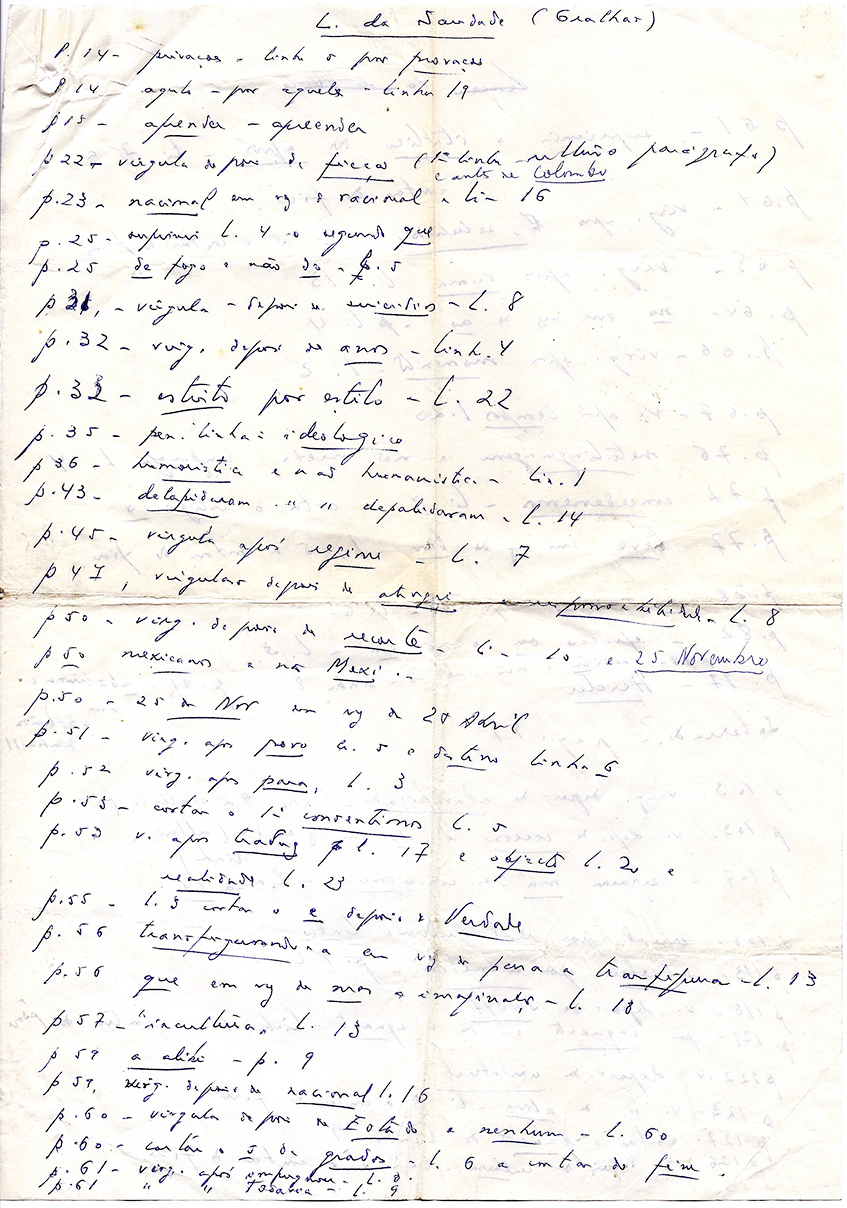 L. da Saudade (Gralhas)
P. 14 - privações - linha 5 por provações
P. 14 agula - por aquela - linha 19
p. 15 - aprender - apreender
p. 22 - vírgula depois de ficção (1ª linha - último parágrafo)
e antes de Colombo
p. 23 - nacional em vez de racional - lin 16
p. 25 - suprimir L. 4 o segundo que
p. 25 de fogo e não do - l. 5
p 31, - vírgula - depois de suicídios - L. 8
p. 32 - virg. depois de anos - linh. 4
p. 33 - estrito por estilo - L. 22
p. 35 - pen. linha: ideologico
p 36 - humoristica e não humanistica - lin. 1
p. 43 - delapidaram " " depalidaram - L. 14
p. 45 - vírgula após regime - L. 7
p 47, vírgulas depois de - L. 8
p 50 - virg. depois de - L. - 10 e 25 Novembro
p 50 mexicanos e não Mexi..
p. 50 - 25 de Nov em vez de 25 Abril
p. 51 - virg. após povo li. 5 e destino linha 6
p. 52 virg. após para, L. 3
p. 53 - cortar o 1º consentimos L. 5
p. 53 v. após l. 17 e objecto l. 20 e
realidade L. 23
p. 55 - l. 3 cortar o e depois de Verdade
p. 56 transfigurando-a em vez de para a transfigura - L. 13
p. 56 que em vez de mas - L. 18
p. 57 - "incultura, L. 13
p 59 a alibi - p. 9
p 59, virg. depois de nacional l. 16
p. 60 - vírgula depois de Estado e nenhum - L. 60
p. 60 - cortar o s de grados - l. 6 a contar do fim.
p. 61 - virg. após - L. 8.
p. 61 " " Todavia - L. 9